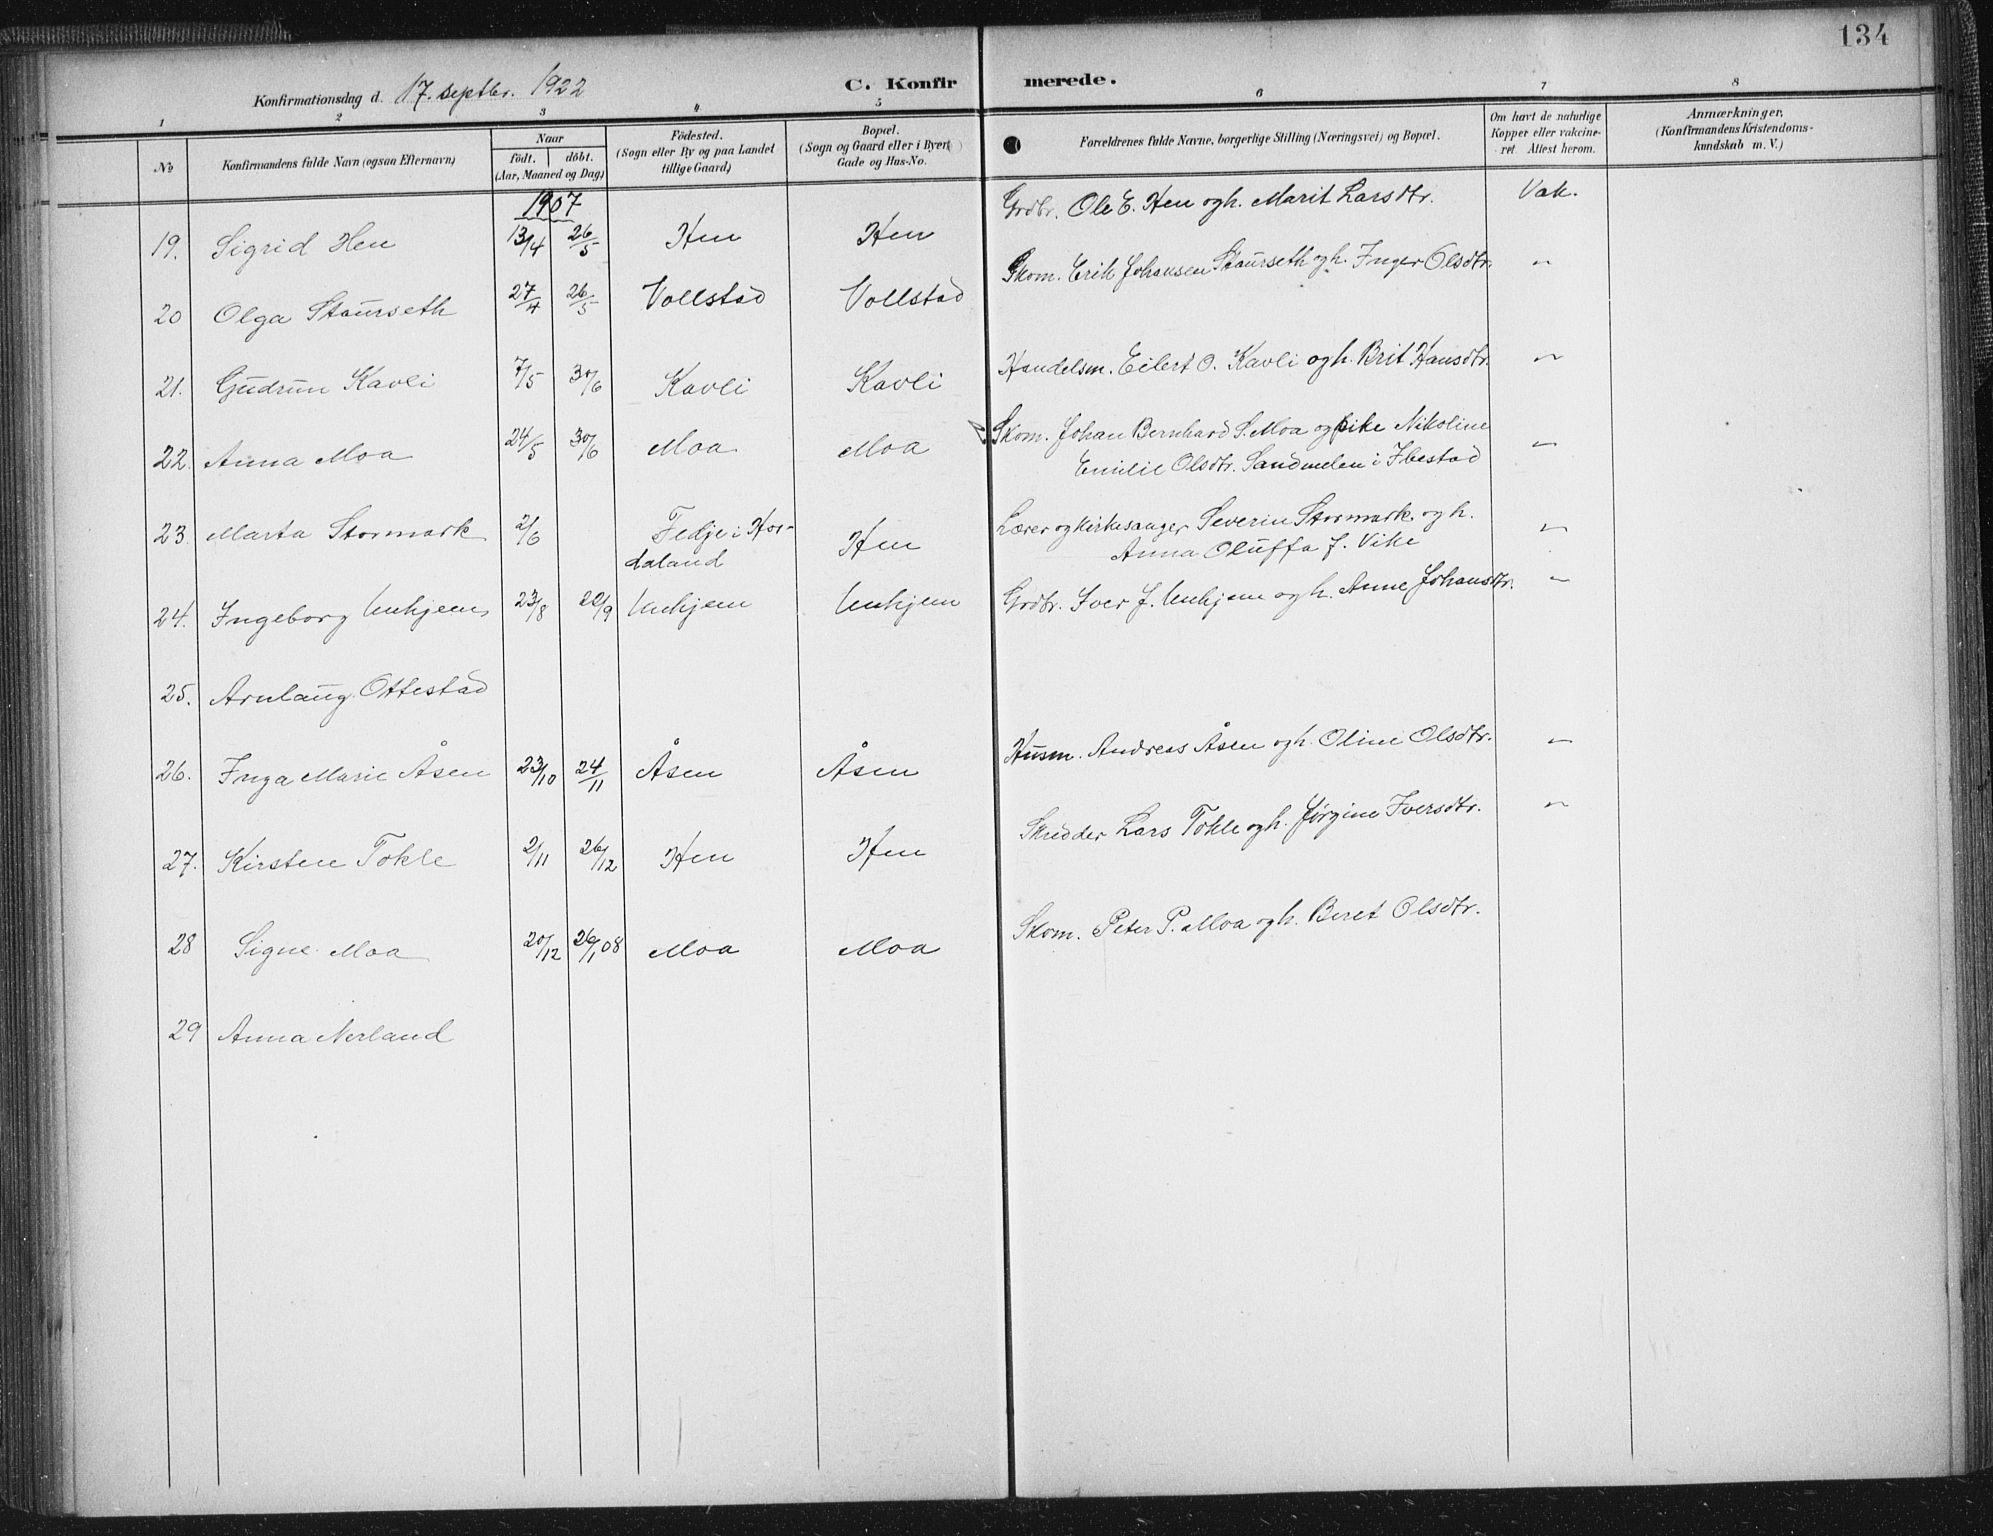 134
Konfirmationsdag d. 17. septbr. 1922 C. Konfirmerede.
1 2 3 4 5 6 7 8
No Konfirmandens fulde Navn (ogsaa Efternavn) Naar födt. döbt. (Aar, Maaned og Dag) Födested. (Sogn eller By og paa Landet tillige Gaard) Bopæl. (Sogn og Gaard eller i Byen Gade og Hus-No. Forældrenes fulde Navne, borgerlige Stilling (Næringsvei) og Bopæl. Om havt de naturlige Kopper eller vakcineret. Attest herom. Anmærkninger, (Konfirmandens Kristendomskundskab m. V.)
1907
19. Sigrid Hen 13/4 26/5 Hen Hen Grdbr. Ole E. Hen og h. Marit Larsdtr. Vak.
20 Olga Staurseth 27/4 26/5 Vollstad Vollstad Skom. Erik Johansen Staurseth og h. Inger Olsdtr. "
21. Gudrun Kavli 7/5 30/6 Kavli Kavli Handelsm. Eilert O. Kavli og h. Brit Hansdtr. "
22. Anna Moa 24/5 30/6 Moa Moa Skom. Johan Bernhard S. Moa og pike Nikoline
Emilie Olsdtr. Sandmelen i Ibestad "
23. Marta Stormark 2/6 Fedje i Hor-
daland Hen Lærer og kirkesanger Severin Stormark og h.
Anna Oluffa f. Vike "
24. Ingeborg Unhjem 23/8 22/9 Unhjem Unhjem Grdbr. Iver J. Unhjem og h. Anne Johansdtr. "
25. Arnlaug Ottestad
26. Inga Marie Åsen 23/10 24/11 Åsen Åsen Husm. Andreas Åsen og h. Oline Olsdtr. "
27. Kirsten Tokle 2/11 26/12 Hen Hen Skredder Lars Tokle og h. Jørgine Iversdtr. "
28 Signe Moa 20/12 26/1 08 Moa Moa Skom. Peter P. Moa og h. Beret Olsdtr.
29 Anna Nerland